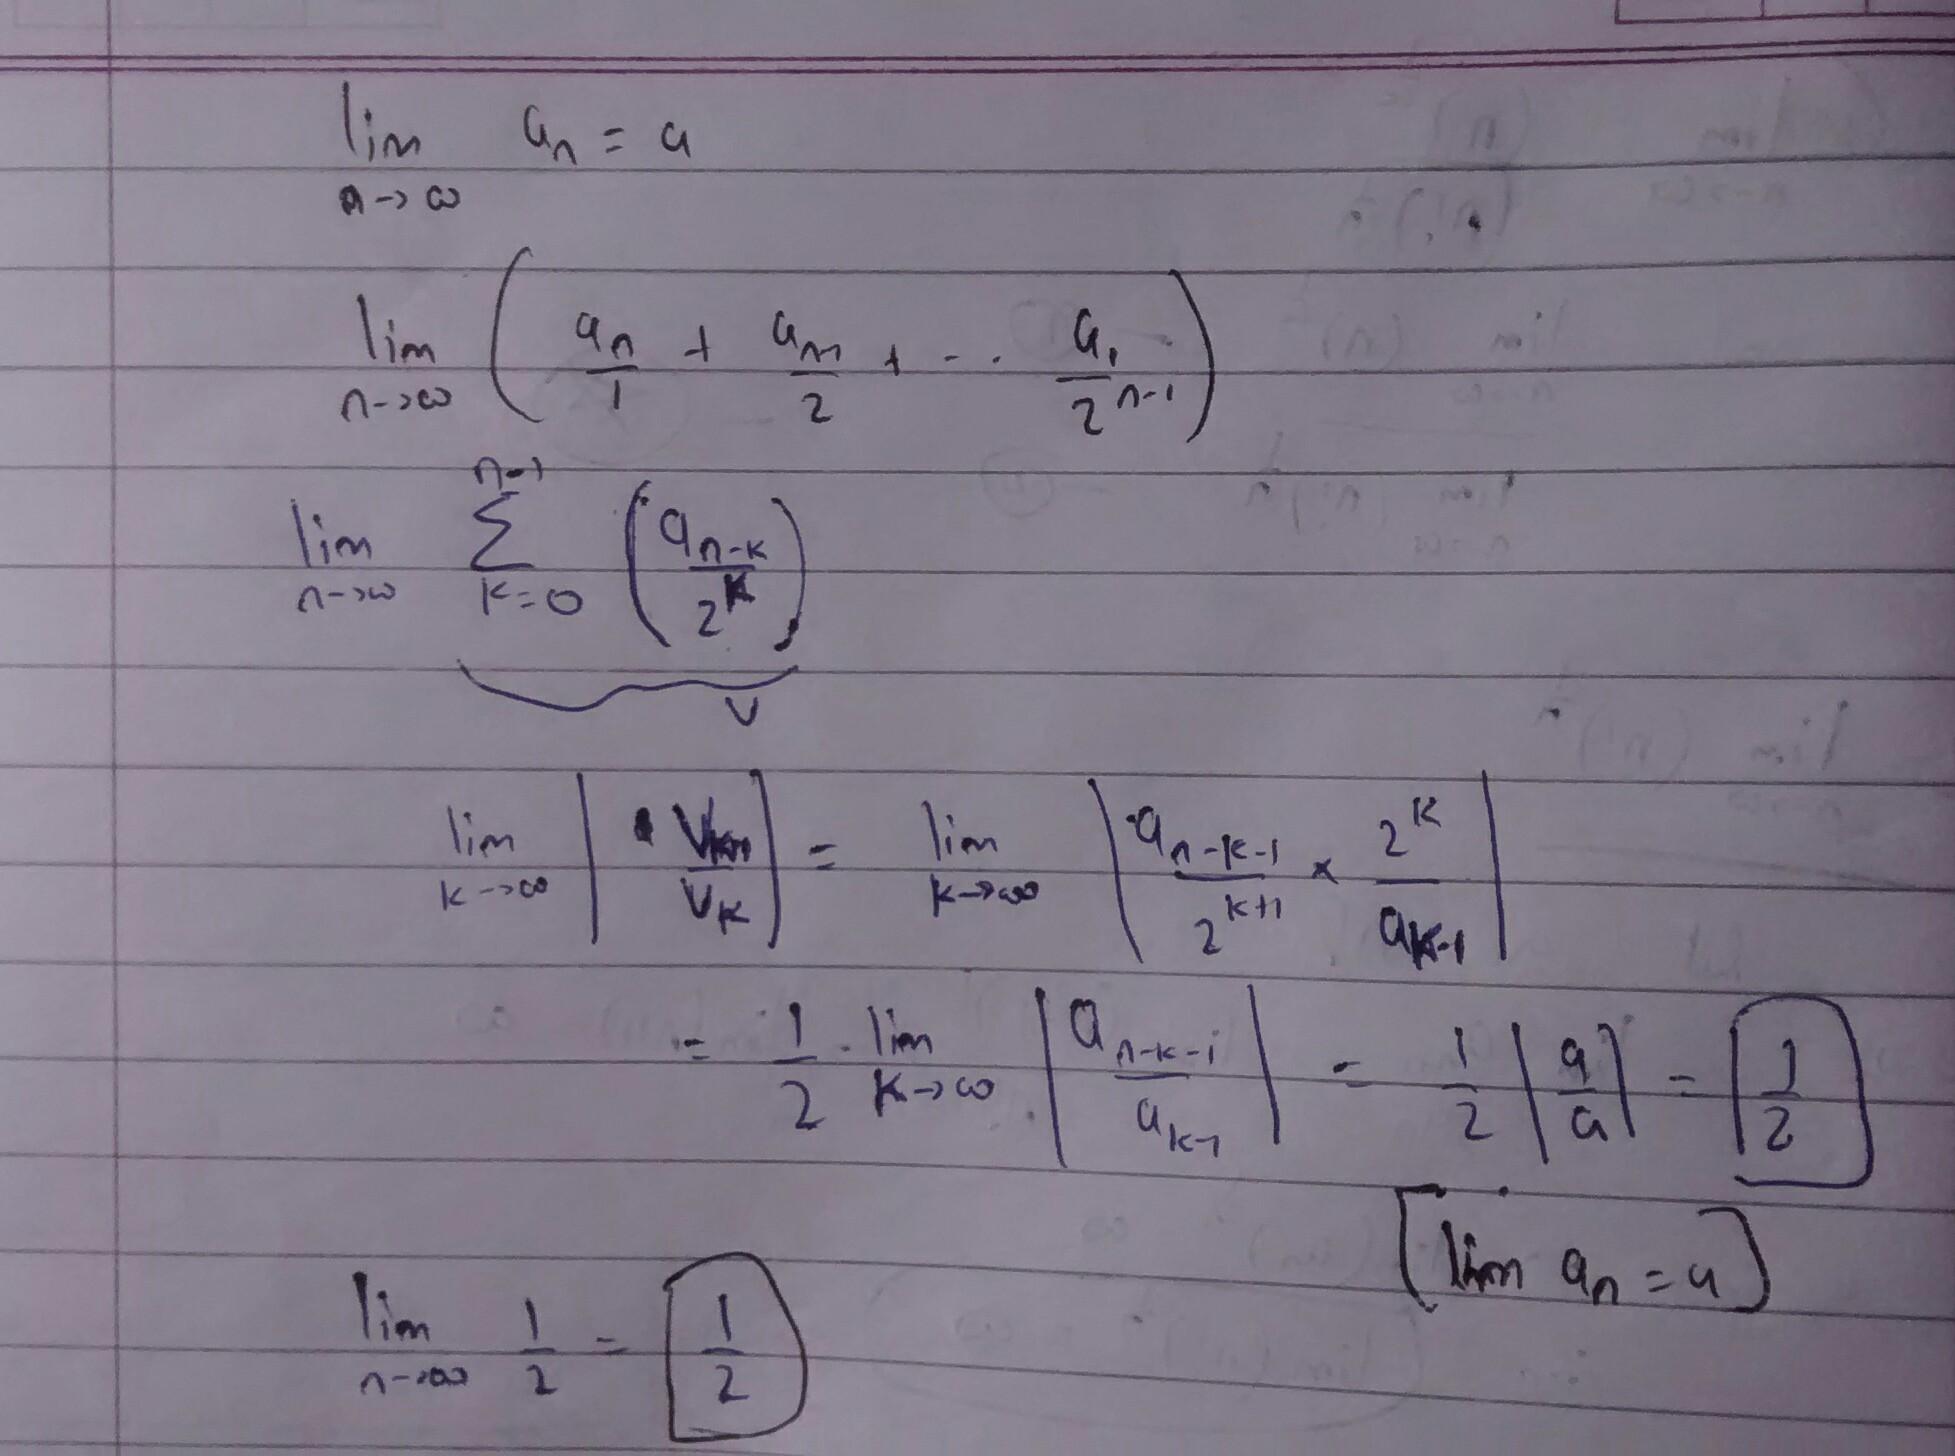 lim n→∞ aₙ = a
lim n→∞ ( aₙ/1 + aₙ₋₁/2 + - - . a₁/2ⁿ⁻¹ )
lim n→∞ Σ_{k=0}^{n-1} ( a_{n-k}/2^k )
v
lim k→∞ | V_{k+1}/V_k | = lim k→∞ | a_{n-k-1}/2^{k+1} × 2^k/a_{k-1} |
= 1/2 . lim k→∞ | a_{n-k-1}/a_{k-1} | = 1/2 | a/a | = 1/2
[ lim aₙ = a ]
lim n→∞ 1/2 = 1/2